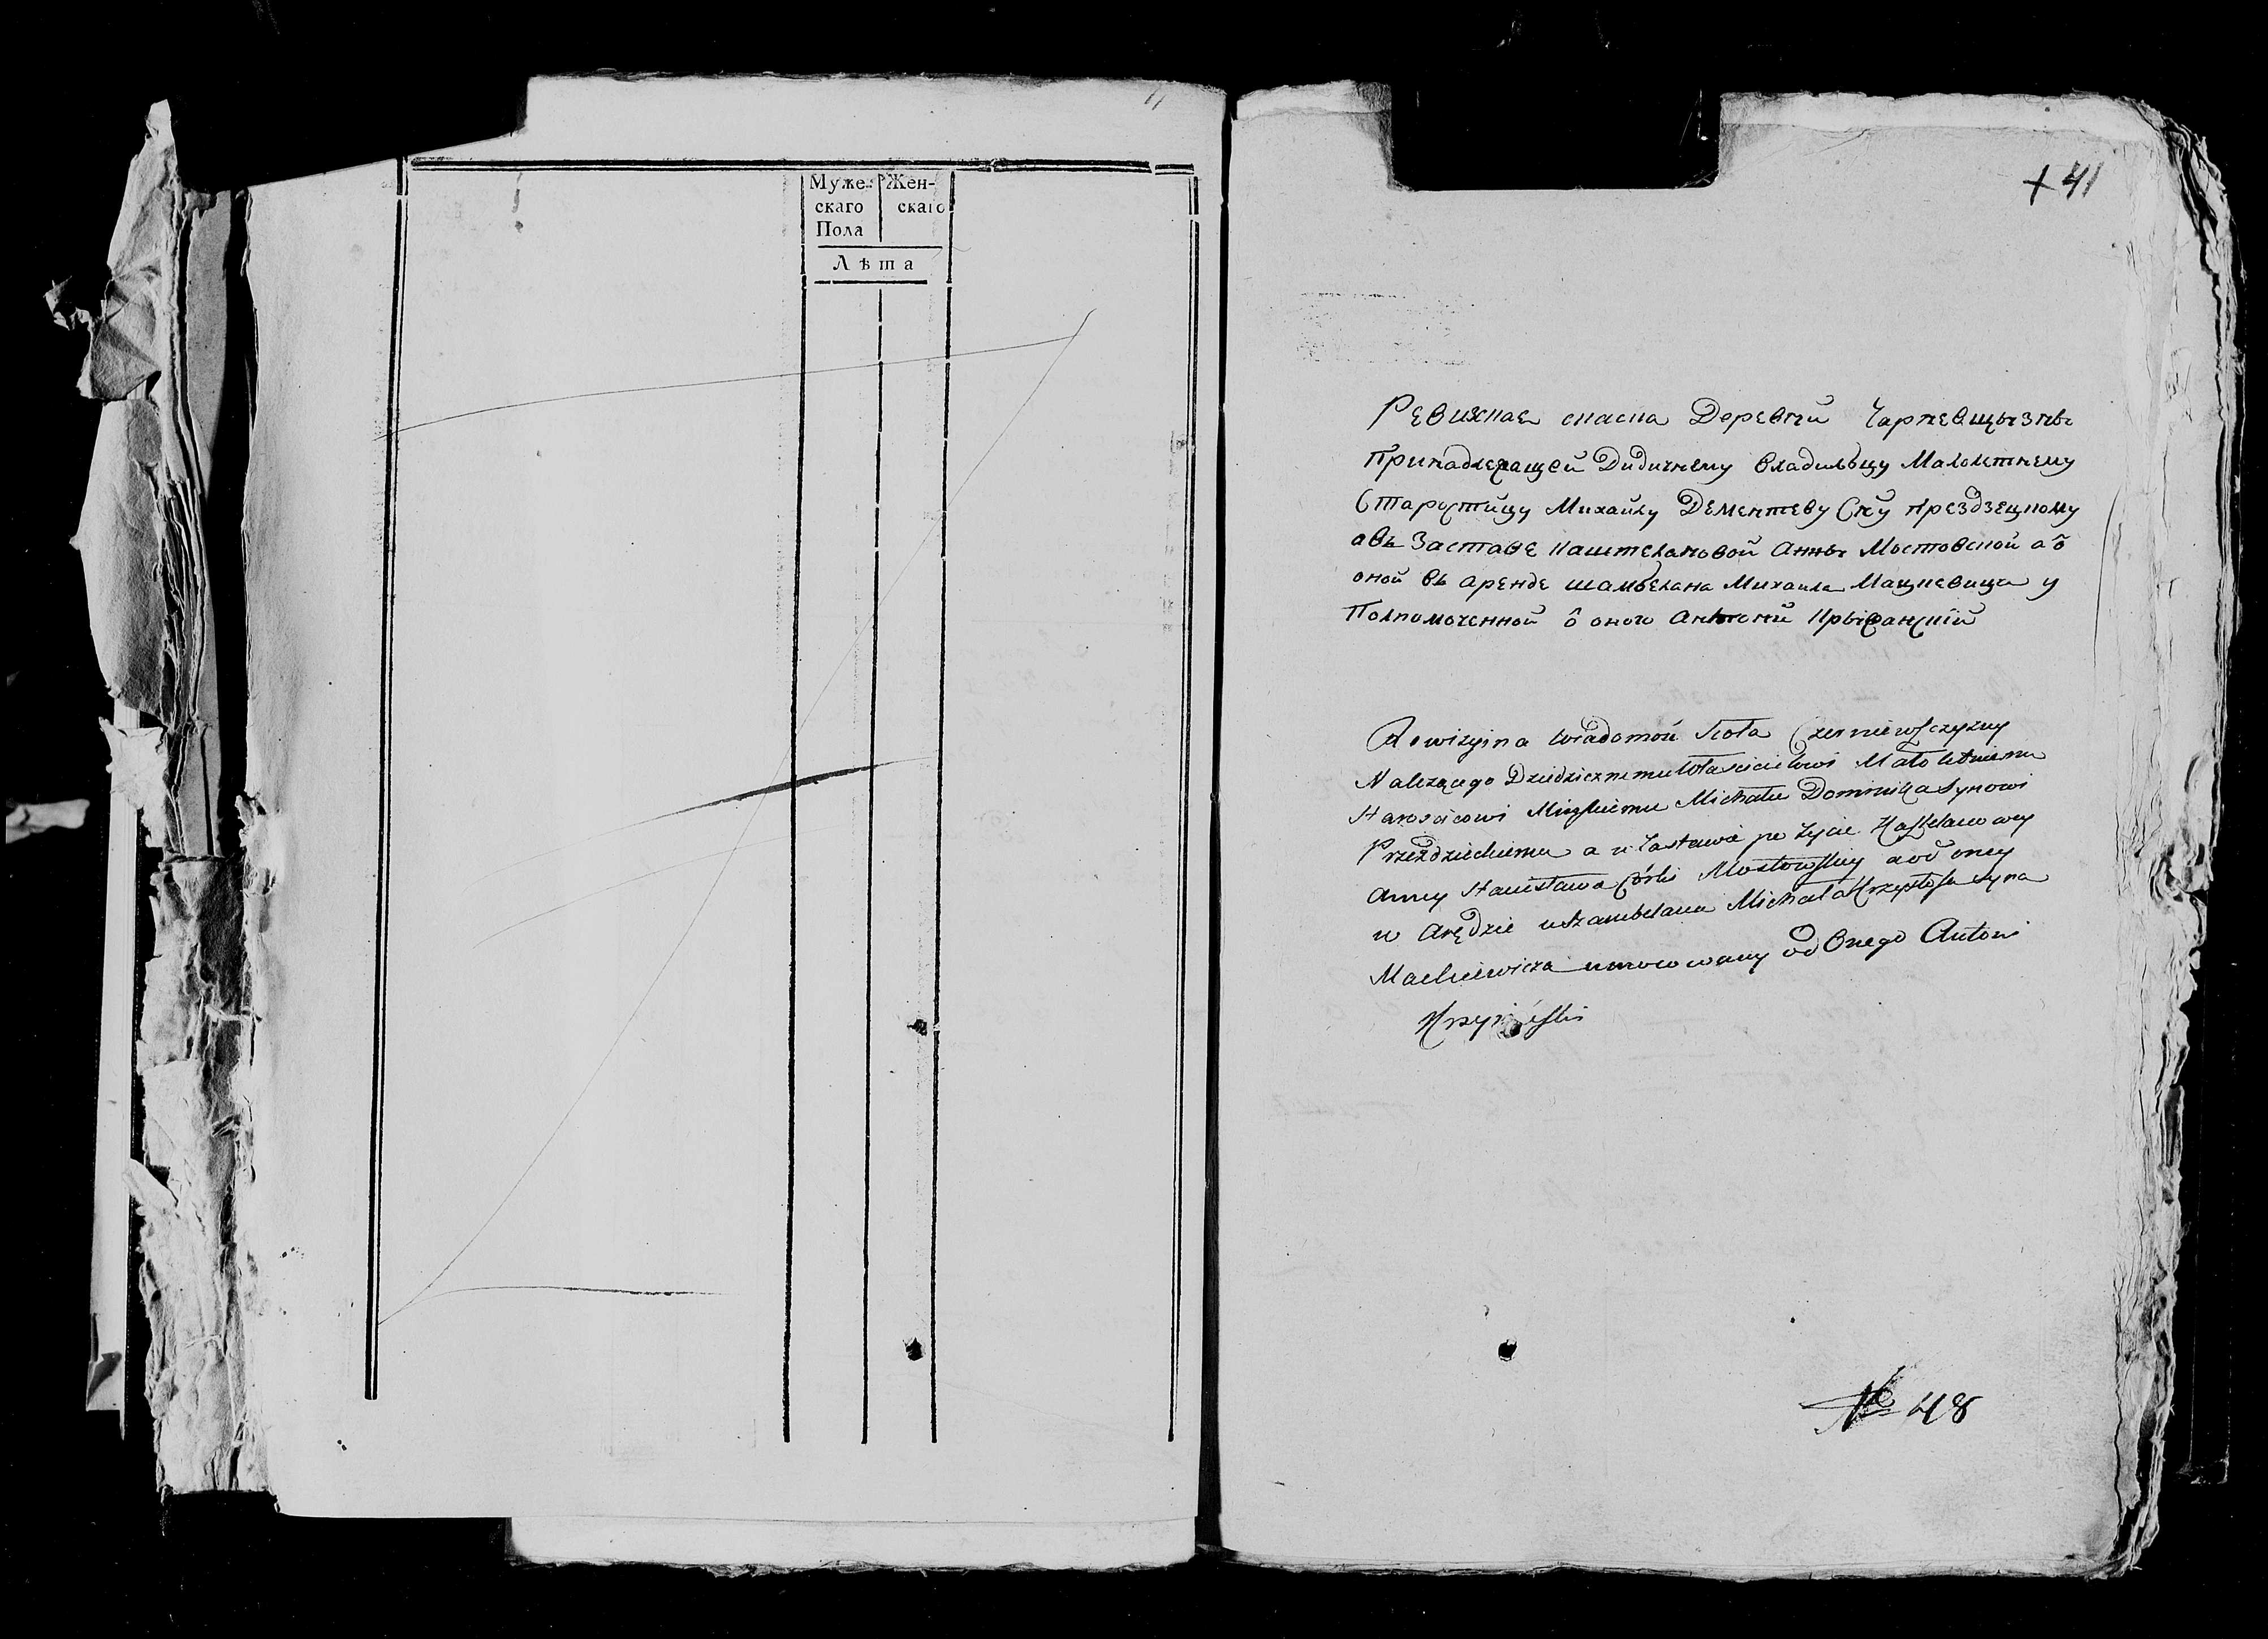 Муже- Жен-
скаго скаго
Пола
Лѣта
41
Ревизная Деревни Чарневщызны
Принадлежащей Дидичнему владильцу Малолетнему
Старостицу Михайлу Дементеву Сну Презdзецкому
авъ Заставе Каштелановой Анны Мостовской а о̂
оной въ аренде шамбелана Михаила Мацкевица у
Полномоченной о̂ оного Антоний
Rewizyina wiadomość Sioła Czerniewszczyzny
Należącego Dziedzicznemu Włascicielowi Małoletniemu
Starościcowi Michału Dominika Synowi
Przezdzieckiemu a w Zastawie po Życie Kasztelanowey
Anny Stanisława Córki Mostowskiey a od oney
w Arędzie u Szambelana Michała Krzysztofa syna
Mackiewicza umocowany od Onego Antoni
№ 48